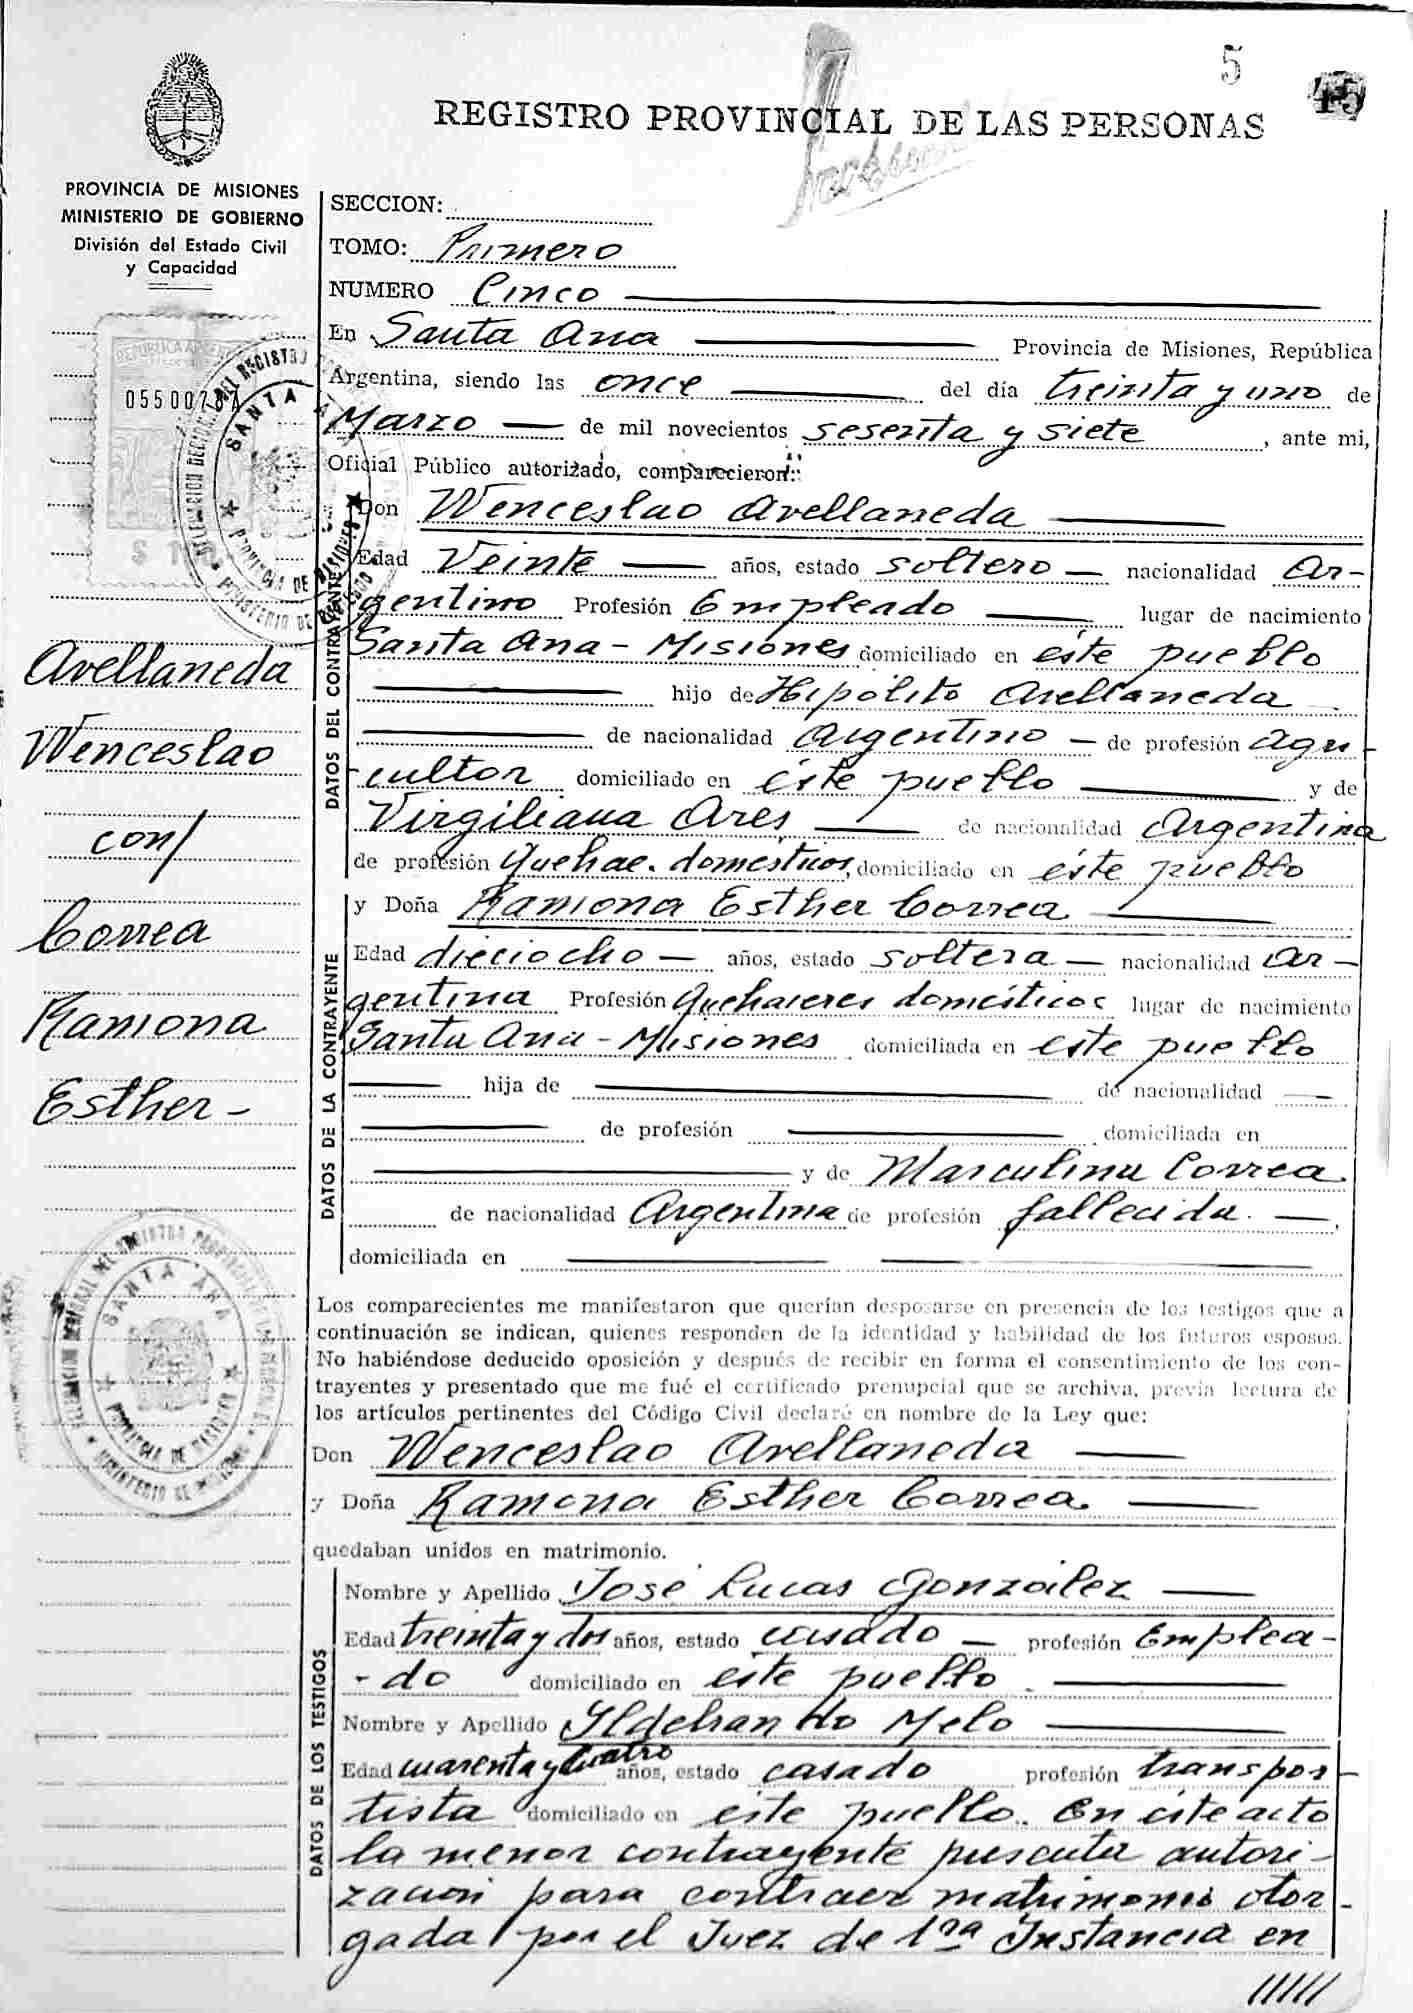 5
45
REGISTRO PROVINCIAL DE LAS PERSONAS
PROVINCIA DE MISIONES
MINISTERIO DE GOBIERNO
División del Estado Civil
y Capacidad
SECCION:
TOMO: Primero
NUMERO Cinco
En Santa Ana Provincia de Misiones, República
Argentina, siendo las once del día treinta y uno de
Marzo de mil novecientos sesenta y siete, ante mi,
Oficial Público autorizado, comparecieron:
Don Wenceslao Avellaneda
Edad Veinte años, estado soltero nacionalidad Ar-
gentino Profesión Empleado lugar de nacimiento
Santa Ana - Misiones domiciliado en éste pueblo
hijo de Hipólito Avellaneda
de nacionalidad Argentino de profesión Agri-
cultor domiciliado en éste pueblo y de
Virgiliana Ares de nacionalidad Argentina
de profesión Quehac. domésticos, domiciliado en éste pueblo
y Doña Ramona Esther Correa
Edad dieciocho años, estado soltera nacionalidad Ar-
gentina Profesión Quehaceres domésticos lugar de nacimiento
Santa Ana - Misiones domiciliada en este pueblo
hija de de nacionalidad
de profesión domiciliada en
y de Marculina Correa
de nacionalidad Argentina de profesión fallecida.
domiciliada en
DATOS DEL CONTRAYENTE
DATOS DE LA CONTRAYENTE
Avellaneda
Wenceslao
con/
Correa
Ramona
Esther -
REPUBLICA
SANTA ANA
PROVINCIA DE MISIONES
SANTA ANA
PROVINCIA DE MISIONES
Los comparecientes me manifestaron que querían desposarse en presencia de los testigos que a
continuación se indican, quienes responden de la identidad y habilidad de los futuros esposos.
No habiéndose deducido oposición y después de recibir en forma el consentimiento de los con-
trayentes y presentado que me fué el certificado prenupcial que se archiva, previa lectura de
los artículos pertinentes del Código Civil declaré en nombre de la Ley que:
Don Wenceslao Avellaneda
y Doña Ramona Esther Correa.
quedaban unidos en matrimonio.
DATOS DE LOS TESTIGOS
Nombre y Apellido José Lucas González
Edad treinta y dos años, estado casado profesión Emplea-
-do domiciliado en este pueblo.
Nombre y Apellido Ildebrando Melo
Edad cuarenta y cuatro años, estado casado profesión transpor-
tista domiciliado en este pueblo. En éste acto
la menor contrayente presenta autori-
zación para contraer matrimonio otor-
gada por el Juez de 1ra Instancia en
//////